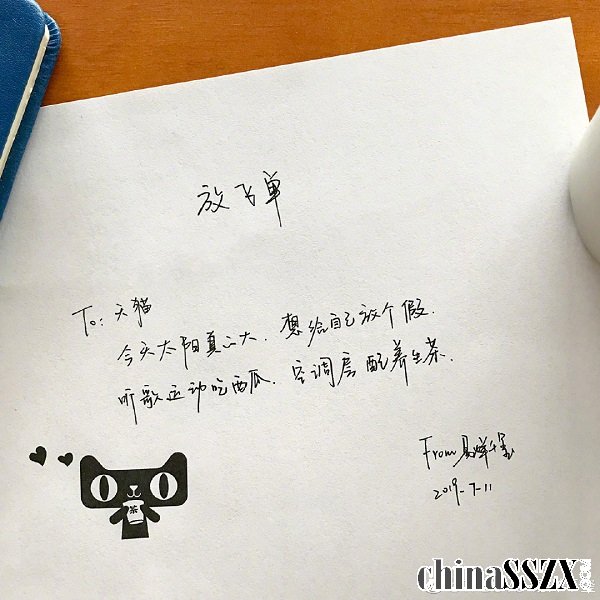 放飞单
To: 天猫
今天太阳真心大. 想给自己放个假.
听歌运动吃西瓜. 空调房配养生茶.
From 易烊千玺
2019-7-11
茶
chinaSSZX